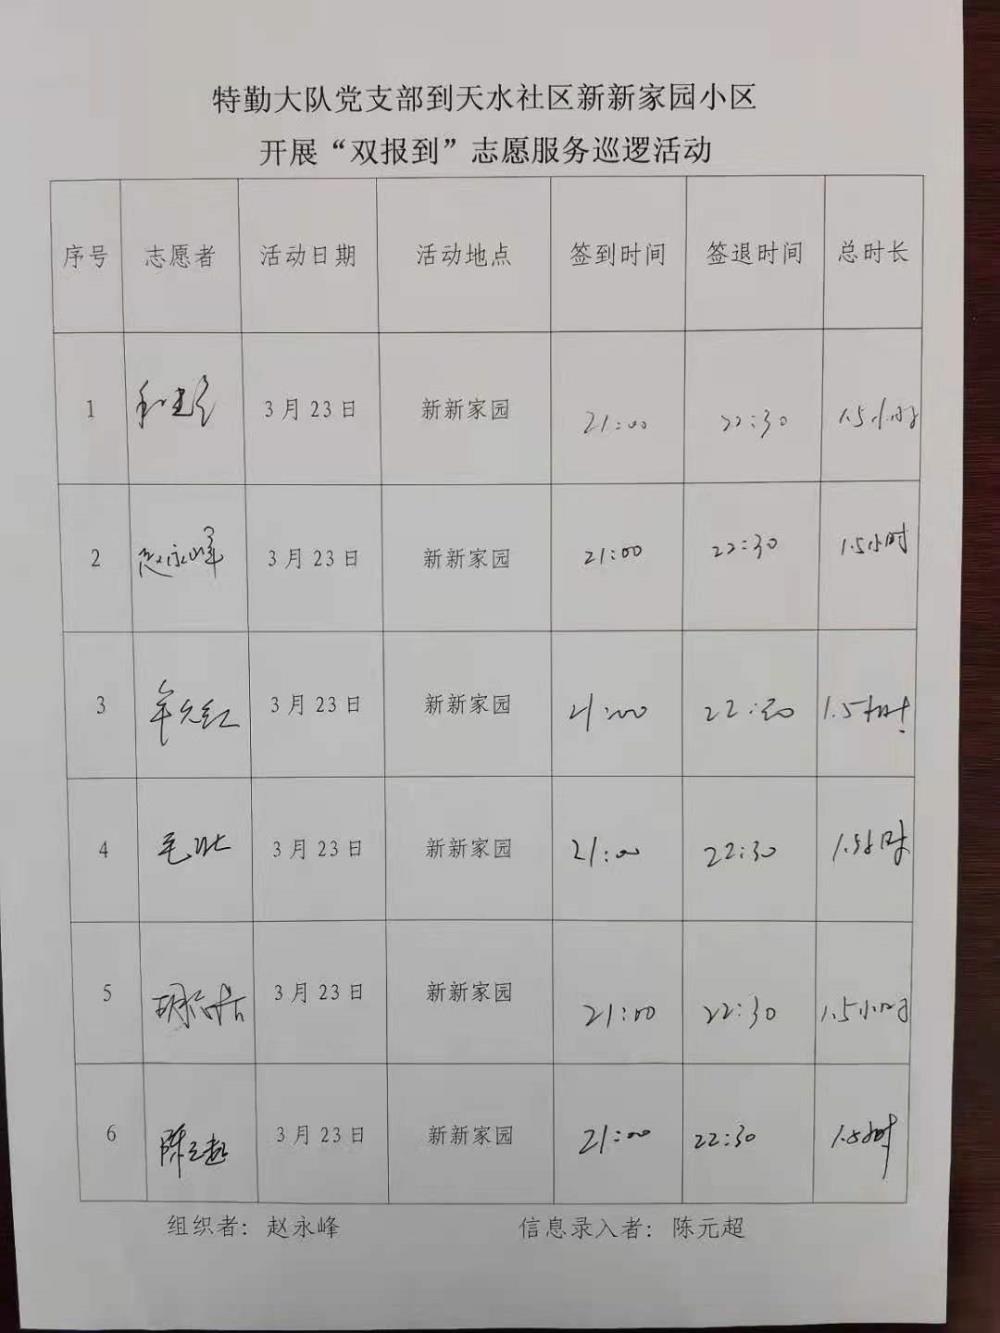 特勤大队党支部到天水社区新新家园小区
开展“双报到”志愿服务巡逻活动
序号 志愿者 活动日期 活动地点 签到时间 签退时间 总时长
1 3月23日 新新家园 21:00 22:30 1.5小时
2 赵永峰 3月23日 新新家园 21:00 22:30 1.5小时
3 牟元红 3月23日 新新家园 21:00 22:30 1.5小时
4 毛壮 3月23日 新新家园 21:00 22:30 1.5小时
5 3月23日 新新家园 21:00 22:30 1.5小时
6 陈元超 3月23日 新新家园 21:00 22:30 1.5小时
组织者：赵永峰 信息录入者：陈元超